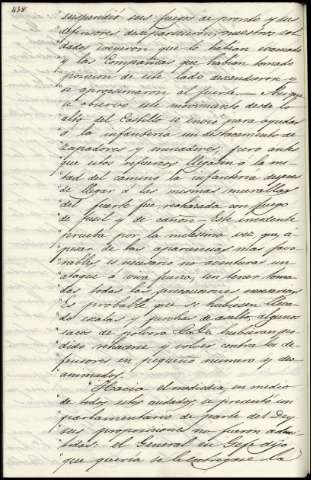 438
suspendió sus fuegos de pronto y sus
defensores desaparecieron, nuestros sol-
dados creyeron que lo habian evacuado
y las Compañias que habian tomado
posicion de este lado descendieron y
se aproximaron al fuerte.— Asi que
se observó este movimiento desde lo
alto del Castillo se envió para ayudar
á la infanteria un destacamento de
Zapadores y minadores, pero antes
que estos refuerzos llegasen a la mi-
tad del camino la infanteria despues
de llegar á las mismas murallas
del fuerte fue rechazada con fuego
de fusil y de cañon.— Este incidente
prueba por la milesima vez que á
pesar de las apariencias mas favo-
rables es necesario no aventurar un
ataque á viva fuerza, sin tener toma-
das todas las precauciones necesarias.
Es probable que si hubiesen lleva-
do escalas y puentes de asalto, algunos
sacos de polvora &a. &a. hubieran po-
dido rehacerse y volver contra los de-
fensores en pequeño numero y des-
animados.
Hacia el mediodia, en medio
de todos estos ataques, se presentó un
parlamentario de parte del Dey
sus proposiciones no fueron admi-
tidas: el General en Gefe dijo
que queria se le entregase la